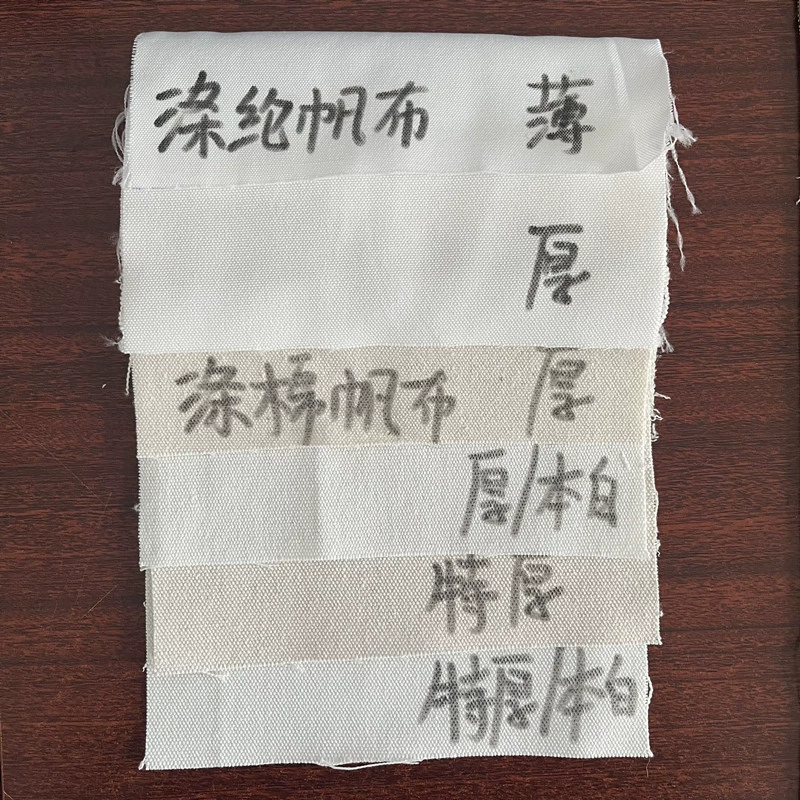 涤纶帆布 薄
厚
涤棉帆布 厚
厚/本白
特厚
特厚/本白